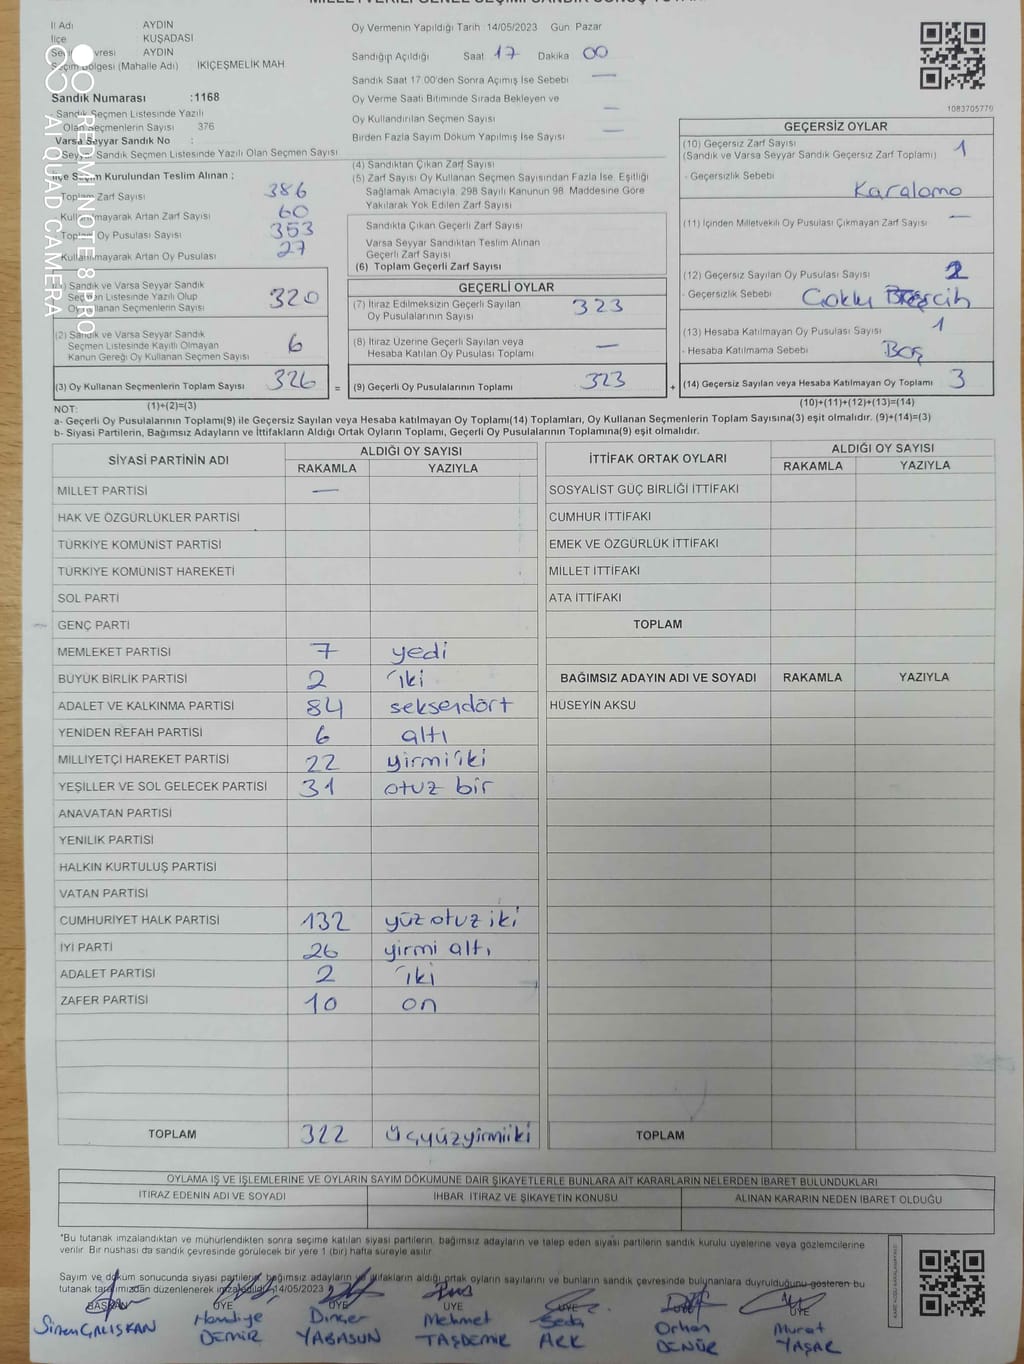 İl Adı AYDIN
İlçe KUŞADASI
AYDIN
Seçim Bölgesi (Mahalle Adı) IKIÇEŞMELİK MAH
Sandık Numarası :1168
Sandık Seçmen Listesinde Yazılı
Olan Seçmenlerin Sayısı 376
Varsa Seyyar Sandık No :
Seyyar Sandık Seçmen Listesinde Yazılı Olan Seçmen Sayısı
İlçe Seçim Kurulundan Teslim Alınan ;
Toplam Zarf Sayısı 386
Kullanılmayarak Artan Zarf Sayısı 60
Toplam Oy Pusulası Sayısı 353
Kullanılmayarak Artan Oy Pusulası 27
(1) Sandık ve Varsa Seyyar Sandık
Seçmen Listesinde Yazılı Olup
Oy Kullanan Seçmenlerin Sayısı 320
(2) Sandık ve Varsa Seyyar Sandık
Seçmen Listesinde Kayıtlı Olmayan
Kanun Gereği Oy Kullanan Seçmen Sayısı 6
(3) Oy Kullanan Seçmenlerin Toplam Sayısı 326 =
(1)+(2)=(3)
Oy Vermenin Yapıldığı Tarih 14/05/2023 Gün Pazar
Sandığın Açıldığı Saat 17 Dakika 00
Sandık Saat 17 00'den Sonra Açımış Ise Sebebi —
Oy Verme Saati Bitiminde Sırada Bekleyen ve
Oy Kullandırılan Seçmen Sayısı —
Birden Fazla Sayım Döküm Yapılmış Ise Sayısı —
(4) Sandıktan Çıkan Zarf Sayısı
(5) Zarf Sayısı Oy Kullanan Seçmen Sayısından Fazla Ise, Eşitliği
Sağlamak Amacıyla, 298 Sayılı Kanunun 98. Maddesine Göre
Yakılarak Yok Edilen Zarf Sayısı
Sandıkta Çıkan Geçerli Zarf Sayısı
Varsa Seyyar Sandıktan Teslim Alınan
Geçerli Zarf Sayısı
(6) Toplam Geçerli Zarf Sayısı
GEÇERLİ OYLAR
(7) İtiraz Edilmeksizin Geçerli Sayılan
Oy Pusulalarının Sayısı 323
(8) İtiraz Üzerine Geçerli Sayılan veya
Hesaba Katılan Oy Pusulası Toplamı —
(9) Geçerli Oy Pusulalarının Toplamı 323 +
1083705770
GEÇERSİZ OYLAR
(10) Geçersiz Zarf Sayısı
(Sandık ve Varsa Seyyar Sandık Geçersiz Zarf Toplamı) 1
- Geçersizlik Sebebi
Karalama
(11) İçinden Milletvekili Oy Pusulası Çıkmayan Zarf Sayısı —
(12) Geçersiz Sayılan Oy Pusulası Sayısı
- Geçersizlik Sebebi Çoklu
(13) Hesaba Katılmayan Oy Pusulası Sayısı 1
- Hesaba Katılmama Sebebi Boş
(14) Geçersiz Sayılan veya Hesaba Katılmayan Oy Toplamı 3
(10)+(11)+(12)+(13)=(14)
NOT:
a- Geçerli Oy Pusulalarının Toplamı(9) ile Geçersiz Sayılan veya Hesaba katılmayan Oy Toplamı(14) Toplamları, Oy Kullanan Seçmenlerin Toplam Sayısına(3) eşit olmalıdır. (9)+(14)=(3)
b- Siyasi Partilerin, Bağımsız Adayların ve İttifakların Aldığı Ortak Oyların Toplamı, Geçerli Oy Pusulalarının Toplamına(9) eşit olmalıdır.
SİYASİ PARTİNİN ADI ALDIĞI OY SAYISI
RAKAMLA YAZIYLA
MİLLET PARTİSİ —
HAK VE ÖZGÜRLÜKLER PARTİSİ
TÜRKİYE KOMÜNİST PARTİSİ
TÜRKİYE KOMÜNİST HAREKETİ
SOL PARTİ
GENÇ PARTİ
MEMLEKET PARTİSİ 7 yedi
BÜYÜK BİRLİK PARTİSİ 2 iki
ADALET VE KALKINMA PARTİSİ 84 seksendört
YENİDEN REFAH PARTİSİ 6 altı
MİLLİYETÇİ HAREKET PARTİSİ 22 yirmiiki
YEŞİLLER VE SOL GELECEK PARTİSİ 31 otuz bir
ANAVATAN PARTİSİ
YENİLİK PARTİSİ
HALKIN KURTULUŞ PARTİSİ
VATAN PARTİSİ
CUMHURİYET HALK PARTİSİ 132 yüz otuz iki
İYİ PARTİ 26 yirmi altı
ADALET PARTİSİ 2 iki
ZAFER PARTİSİ 10 on
TOPLAM 322 üçyüzyirmiiki
İTTİFAK ORTAK OYLARI ALDIĞI OY SAYISI
RAKAMLA YAZIYLA
SOSYALİST GÜÇ BİRLİĞİ İTTİFAKI
CUMHUR İTTİFAKI
EMEK VE ÖZGÜRLÜK İTTİFAKI
MİLLET İTTİFAKI
ATA İTTİFAKI
TOPLAM
BAĞIMSIZ ADAYIN ADI VE SOYADI RAKAMLA YAZIYLA
HÜSEYİN AKSU
TOPLAM
OYLAMA İŞ VE İŞLEMLERİNE VE OYLARIN SAYIM DÖKÜMÜNE DAİR ŞİKAYETLERLE BUNLARA AİT KARARLARIN NELERDEN İBARET BULUNDUKLARI
İTİRAZ EDENİN ADI VE SOYADI İHBAR İTİRAZ VE ŞİKAYETİN KONUSU ALINAN KARARIN NEDEN İBARET OLDUĞU
*Bu tutanak imzalandıktan ve mühürlendikten sonra seçime katılan siyasi partilerin, bağımsız adayların ve talep eden siyasi partilerin sandık kurulu üyelerine veya gözlemcilerine
verilir. Bir nüshası da sandık çevresinde görülecek bir yere 1 (bir) hafta süreyle asılır
Sayım ve döküm sonucunda siyasi partilerin, bağımsız adayların ve ittifakların aldığı ortak oyların sayılarını ve bunların sandık çevresinde bulunanlara duyrulduğunu gösteren bu
tutanak tarafımızdan düzenlenerek imzaledildi. 14/05/2023
BAŞKAN ÜYE ÜYE ÜYE ÜYE ÜYE
Sinem ÇALIŞKAN
Hamdiye DEMİR
Dinçer YABASUN
Mehmet TAŞDEMİR
Seda
Orhan
Murat YAŞAR
REDMI NOTE 8 PRO
AI QUAD CAMERA